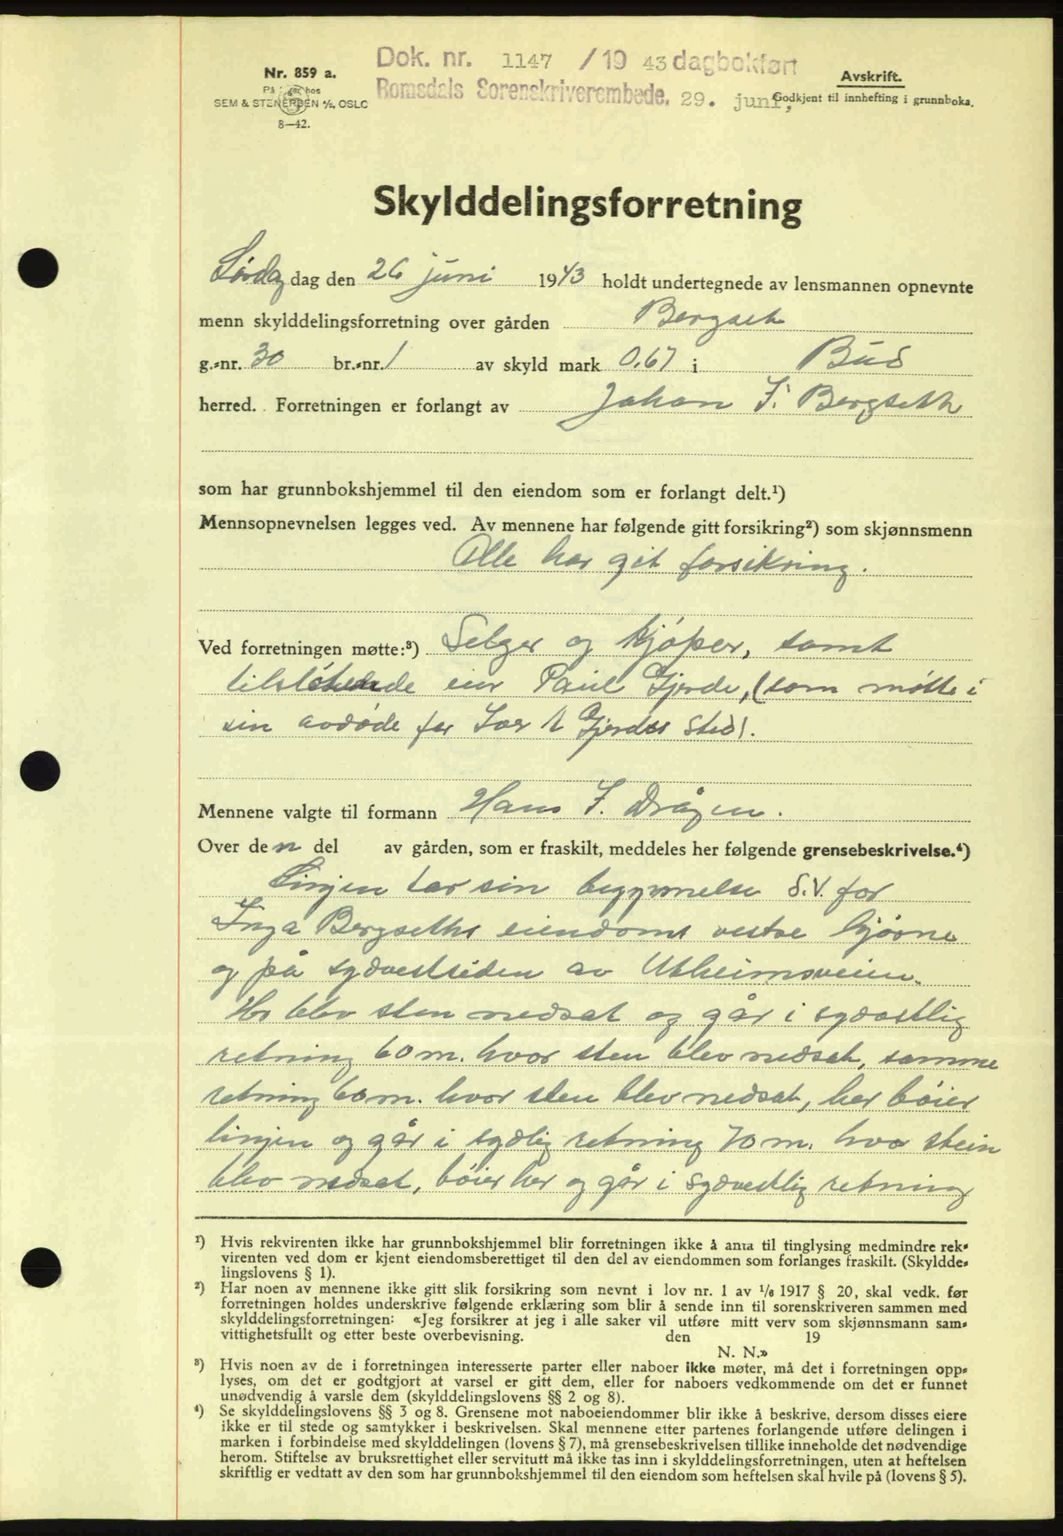 Dok. nr. 1147 / 19 43 dagbokført
Romsdals Sorenskriverembede, 29. juni,
Nr. 859 a.
På hos
SEM & STENERSEN A/S, OSLO
8—42.
Avskrift.
Godkjent til innhefting i grunnboka.
Skylddelingsforretning
dag den 26 juni 1943 holdt undertegnede av lensmannen opnevnte
menn skylddelingsforretning over gården Bergset
g.-nr. 30 br.-nr. 1 av skyld mark 0.67 i Bud
herred. Forretningen er forlangt av Johan J. Bergseth
som har grunnbokshjemmel til den eiendom som er forlangt delt.¹)
Mennsopnevnelsen legges ved. Av mennene har følgende gitt forsikring²) som skjønnsmenn
Alle har git forsikring.
Ved forretningen møtte:³) Selger og kjøper, samt
eier Paul Gjerde, (som møtte i
sin avdøde far Iver Gjerdes sted).
Mennene valgte til formann Hans J. Drågen.
Over den del av gården, som er fraskilt, meddeles her følgende grensebeskrivelse.⁴)
Linjen tar sin begynnelse S.V. for
Inga Bergseths eiendoms vestre hjørne
og på sydvestsiden av Utheimsveien.
Her blev sten nedsat og går i sydvestlig
retning 60 m. hvor sten blev nedsat, samme
retning 60 m. hvor sten blev nedsat, her bøier
linjen og går i sydlig retning 70 m. hvor stein
blev nedsat, bøier her og går i sydvestlig retning
¹) Hvis rekvirenten ikke har grunnbokshjemmel blir forretningen ikke å anta til tinglysing medmindre rek-
virenten ved dom er kjent eiendomsberettiget til den del av eiendommen som forlanges fraskilt. (Skyldde-
lingslovens § 1).
²) Har noen av mennene ikke gitt slik forsikring som nevnt i lov nr. 1 av 1/6 1917 § 20, skal vedk. før
forretningen holdes underskrive følgende erklæring som blir å sende inn til sorenskriveren sammen med
skylddelingsforretningen: «Jeg forsikrer at jeg i alle saker vil utføre mitt verv som skjønnsmann sam-
vittighetsfullt og etter beste overbevisning. den 19
N. N.»
³) Hvis noen av de i forretningen interesserte parter eller naboer ikke møter, må det i forretningen opp-
lyses, om det er godtgjort at varsel er gitt dem, eller for naboers vedkommende om det er funnet
unødvendig å varsle dem (skylddelingslovens §§ 2 og 8).
⁴) Se skylddelingslovens §§ 3 og 8. Grensene mot naboeiendommer blir ikke å beskrive, dersom disses eiere
ikke er til stede og samtykker i beskrivelsen. Skal mennene etter partenes forlangende utføre delingen i
marken i forbindelse med skylddelingen (lovens § 7), må grensebeskrivelsen tillike inneholde det nødvendige
herom. Stiftelse av bruksrettighet eller servitutt må ikke tas inn i skylddelingsforretningen, uten at heftelsen
skriftlig er vedtatt av den som har grunnbokshjemmel til den eiendom som heftelsen skal hvile på (lovens § 5).